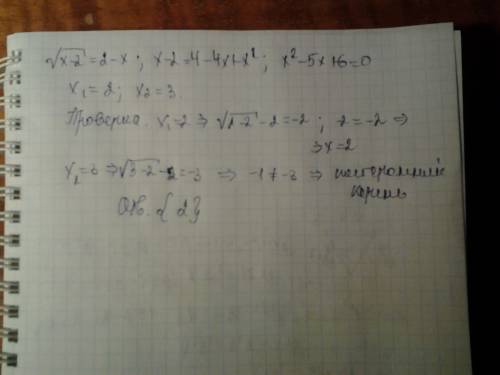 √x-2 = 2-x ; x-2=4-4x+x² ; x²-5x+6=0
x₁=2; x₂=3.
Проверка. x₁=2 ⇒ √2-2 -2=-2 ; -2=-2 ⇒
⇒ x=2
x₂=3 ⇒ √3-2 -2=-3 ⇒ -1≠-3 ⇒ посторонний
корень
Отв. {2}